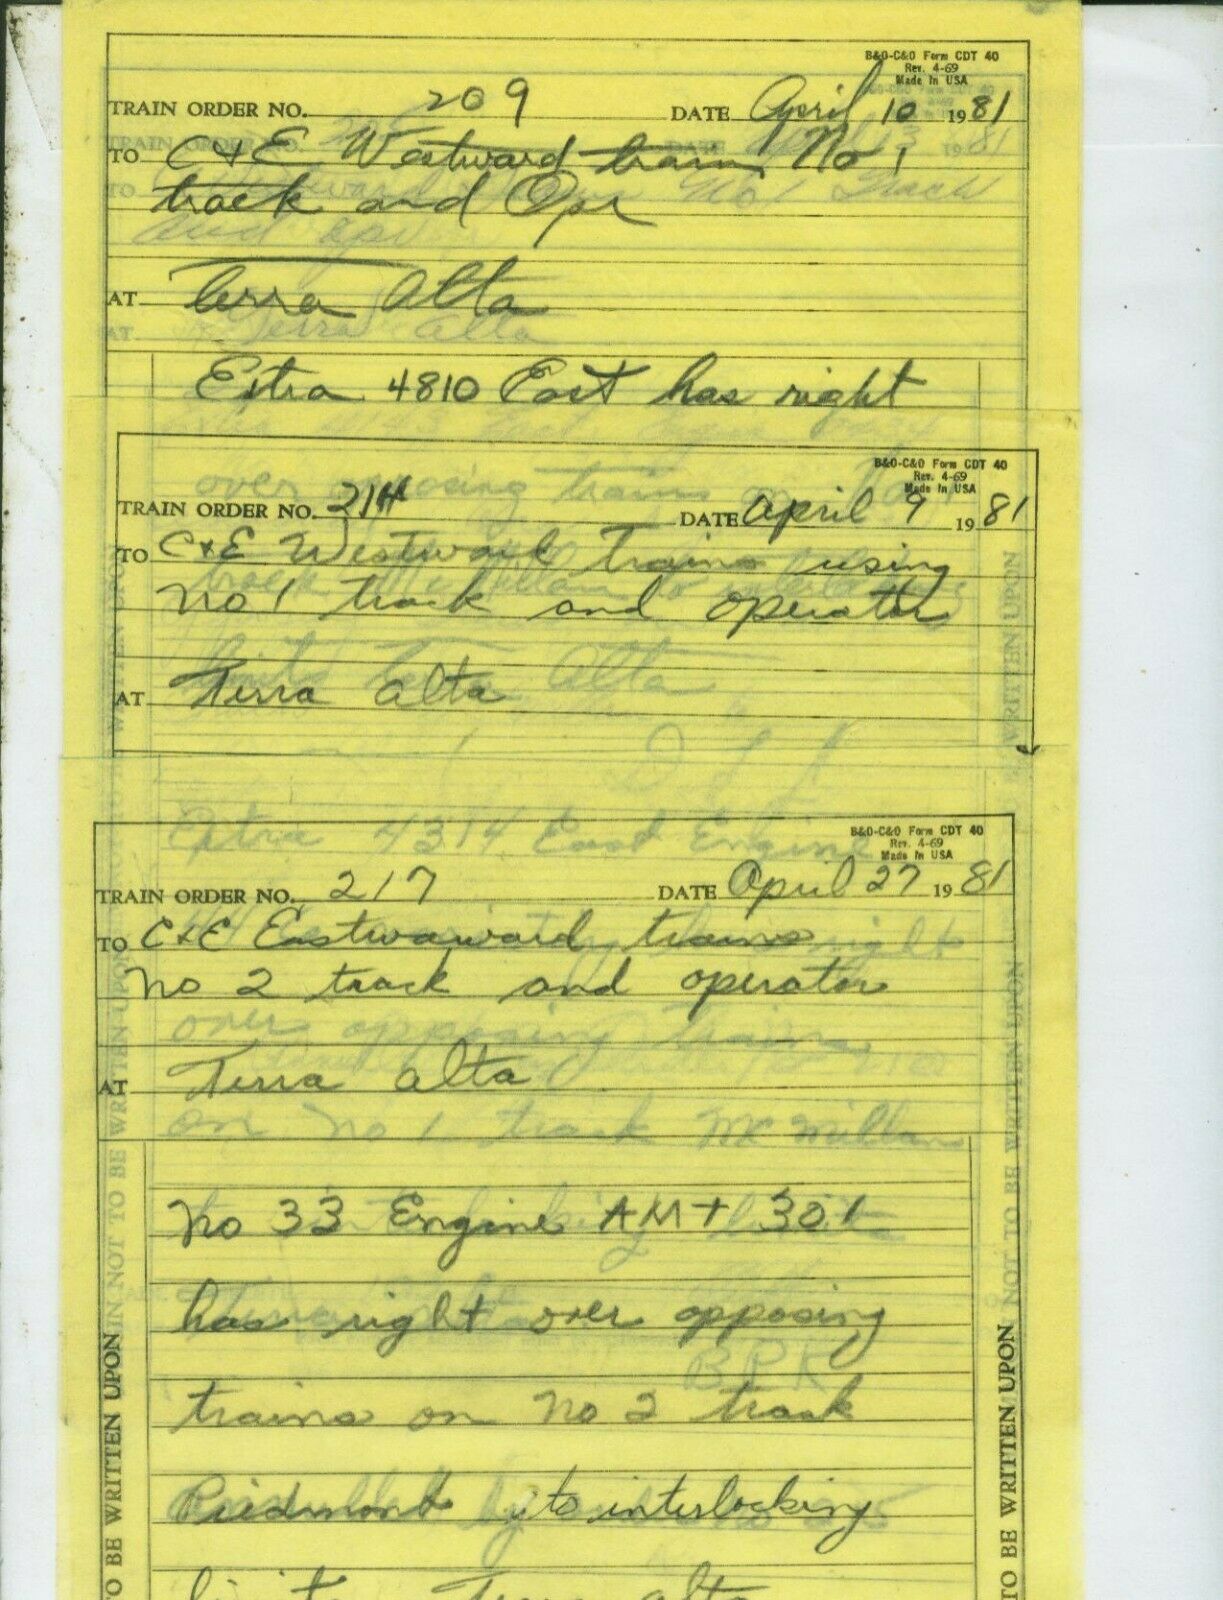 B&O-C&O Form CDT 40
Rev. 4-69
Made in USA
TRAIN ORDER NO. 209 DATE April 10 1981
TO C+E Westward trains No 1
track and Opr
AT Terra Alta
Extra 4810 East has right
B&O-C&O Form CDT 40
Rev. 4-69
Made in USA
TRAIN ORDER NO. DATE April 9 1981
TO C+E Westward Trains using
No 1 track and operator
AT Terra Alta
over opposing trains on
Extra 4314 East Engine
B&O-C&O Form CDT 40
Rev. 4-69
Made in USA
TRAIN ORDER NO. 217 DATE April 27 1981
TO C+E Eastwaward trains
No 2 track and operator
right
over opposing trains
AT Terra Alta
on No 1 track McMillan
No 33 Engine AMT 301
has right over opposing
BPK
trains on No 2 track
Piedmont to interlocking
limits Terra alta
TO BE WRITTEN UPON
NOT TO BE WRITTEN UPON
TO BE WRITTEN UPON
NOT TO BE WRITTEN UPON
WRITTEN UPON